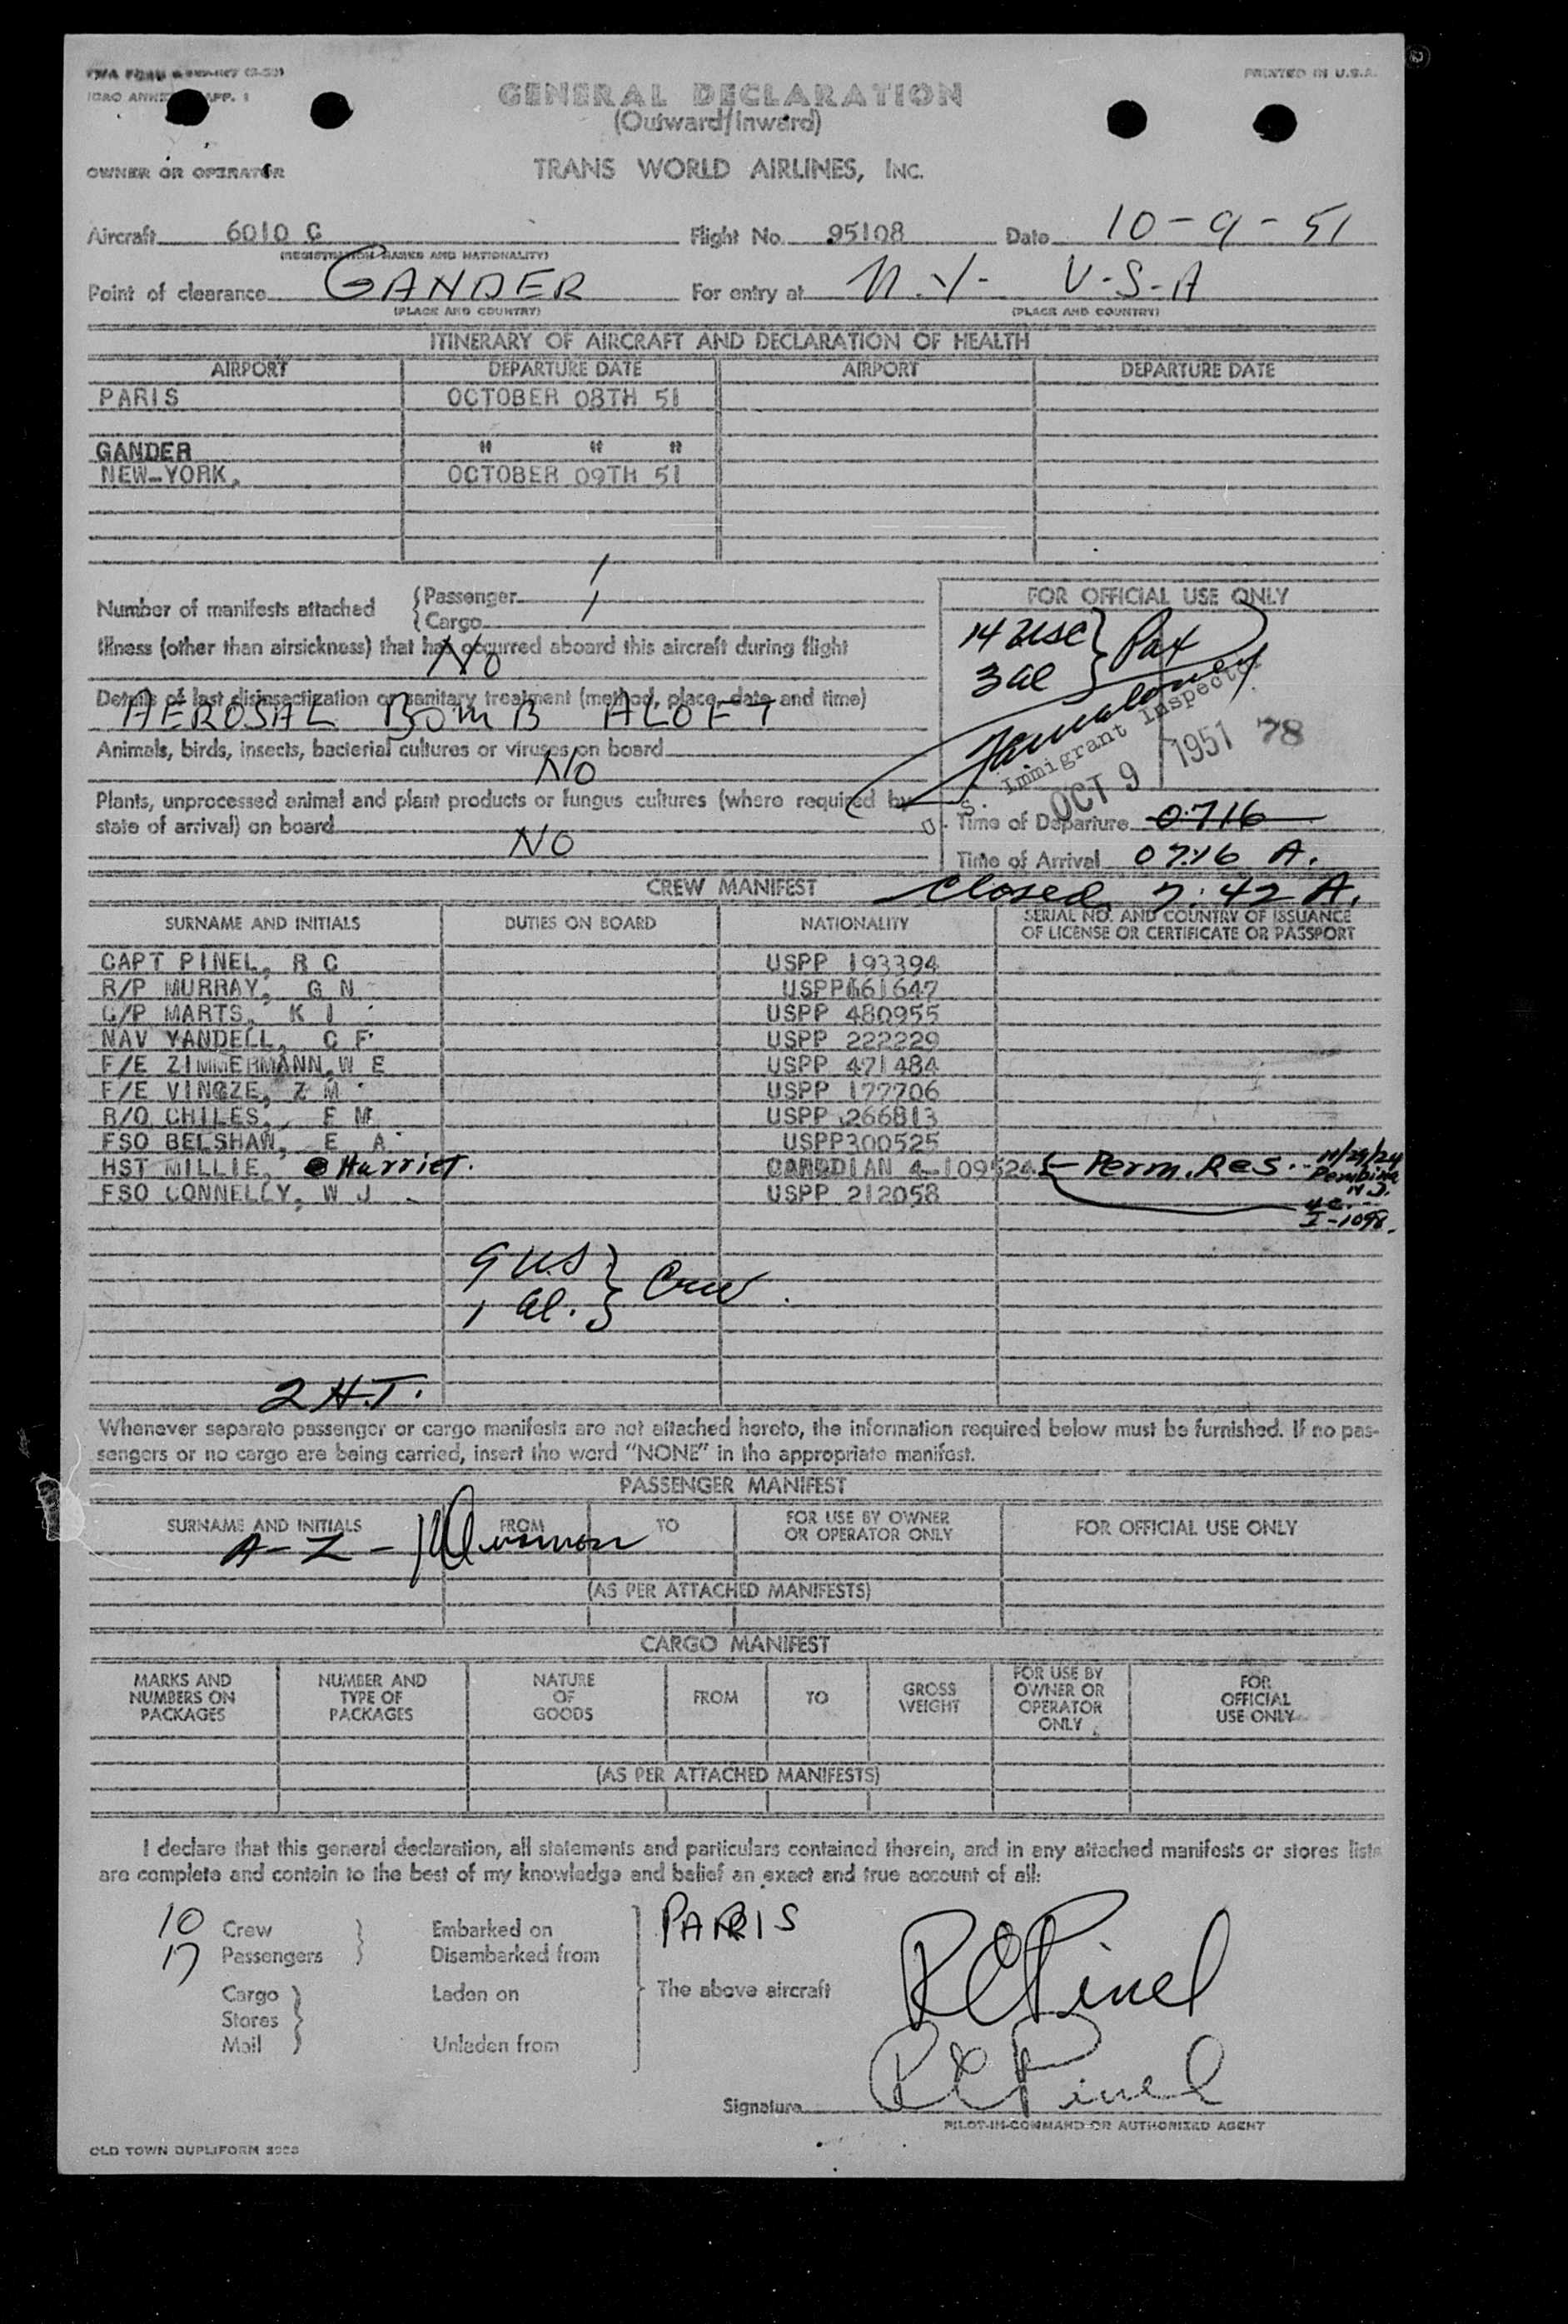 PRINTED IN U.S.A.
GENERAL DECLARATION
(Outward/Inward)
OWNER OR OPERATOR
TRANS WORLD AIRLINES, INC.
Aircraft 6010 C Flight No. 95108 Date 10-9-51
(REGISTRATION MARKS AND NATIONALITY)
Point of clearance GANDER For entry at N.Y. U-S-A
(PLACE AND COUNTRY) (PLACE AND COUNTRY)
ITINERARY OF AIRCRAFT AND DECLARATION OF HEALTH
AIRPORT DEPARTURE DATE AIRPORT DEPARTURE DATE
PARIS OCTOBER 08TH 51
GANDER " " "
NEW-YORK. OCTOBER 09TH 51
Number of manifests attached { Passenger 1
Cargo 1
Illness (other than airsickness) that has occurred aboard this aircraft during flight
NO
Details of last disinsectization or sanitary treatment (method, place, date and time)
AEROSAL BOMB ALOFT
Animals, birds, insects, bacterial cultures or viruses on board
NO
Plants, unprocessed animal and plant products or fungus cultures (where required by
state of arrival) on board
NO
FOR OFFICIAL USE ONLY
14 USC } Pax
3 al
U. S. Immigrant Inspector
OCT 9 1951 78
Time of Departure 0716
Time of Arrival 0716 A.
Closed 7:42 A.
CREW MANIFEST
SURNAME AND INITIALS DUTIES ON BOARD NATIONALITY SERIAL NO. AND COUNTRY OF ISSUANCE
OF LICENSE OR CERTIFICATE OR PASSPORT
CAPT PINEL, R C USPP 193394
R/P MURRAY, G N USPP 661647
C/P MARTS, K I USPP 480955
NAV YANDELL, C F USPP 222229
F/E ZIMMERMANN, W E USPP 471484
F/E VINGZE, Z M USPP 177706
R/O CHILES, E M USPP 266813
FSO BELSHAW, E A USPP300525
HST MILLIE, Harriet. CANADIAN 4-109524 Perm. Res.. 11/29/24
Pembina
N.D.
I-1098.
FSO CONNELLY, W J USPP 212058
9 US } Crew.
1 al.
2 H.T.
Whenever separate passenger or cargo manifests are not attached hereto, the information required below must be furnished. If no pas-
sengers or no cargo are being carried, insert the word "NONE" in the appropriate manifest.
PASSENGER MANIFEST
SURNAME AND INITIALS FROM TO FOR USE BY OWNER
OR OPERATOR ONLY FOR OFFICIAL USE ONLY
A-Z-
(AS PER ATTACHED MANIFESTS)
CARGO MANIFEST
MARKS AND
NUMBERS ON
PACKAGES
NUMBER AND
TYPE OF
PACKAGES
NATURE
OF
GOODS
FROM
TO
GROSS
WEIGHT
FOR USE BY
OWNER OR
OPERATOR
ONLY
FOR
OFFICIAL
USE ONLY
(AS PER ATTACHED MANIFESTS)
I declare that this general declaration, all statements and particulars contained therein, and in any attached manifests or stores lists
are complete and contain to the best of my knowledge and belief an exact and true account of all:
10 Crew Embarked on PARIS
17 Passengers Disembarked from
Cargo Laden on The above aircraft
Stores
Mail Unladen from
R C Pinel
Signature R C Pinel
PILOT-IN-COMMAND OR AUTHORIZED AGENT
OLD TOWN DUPLIFORM